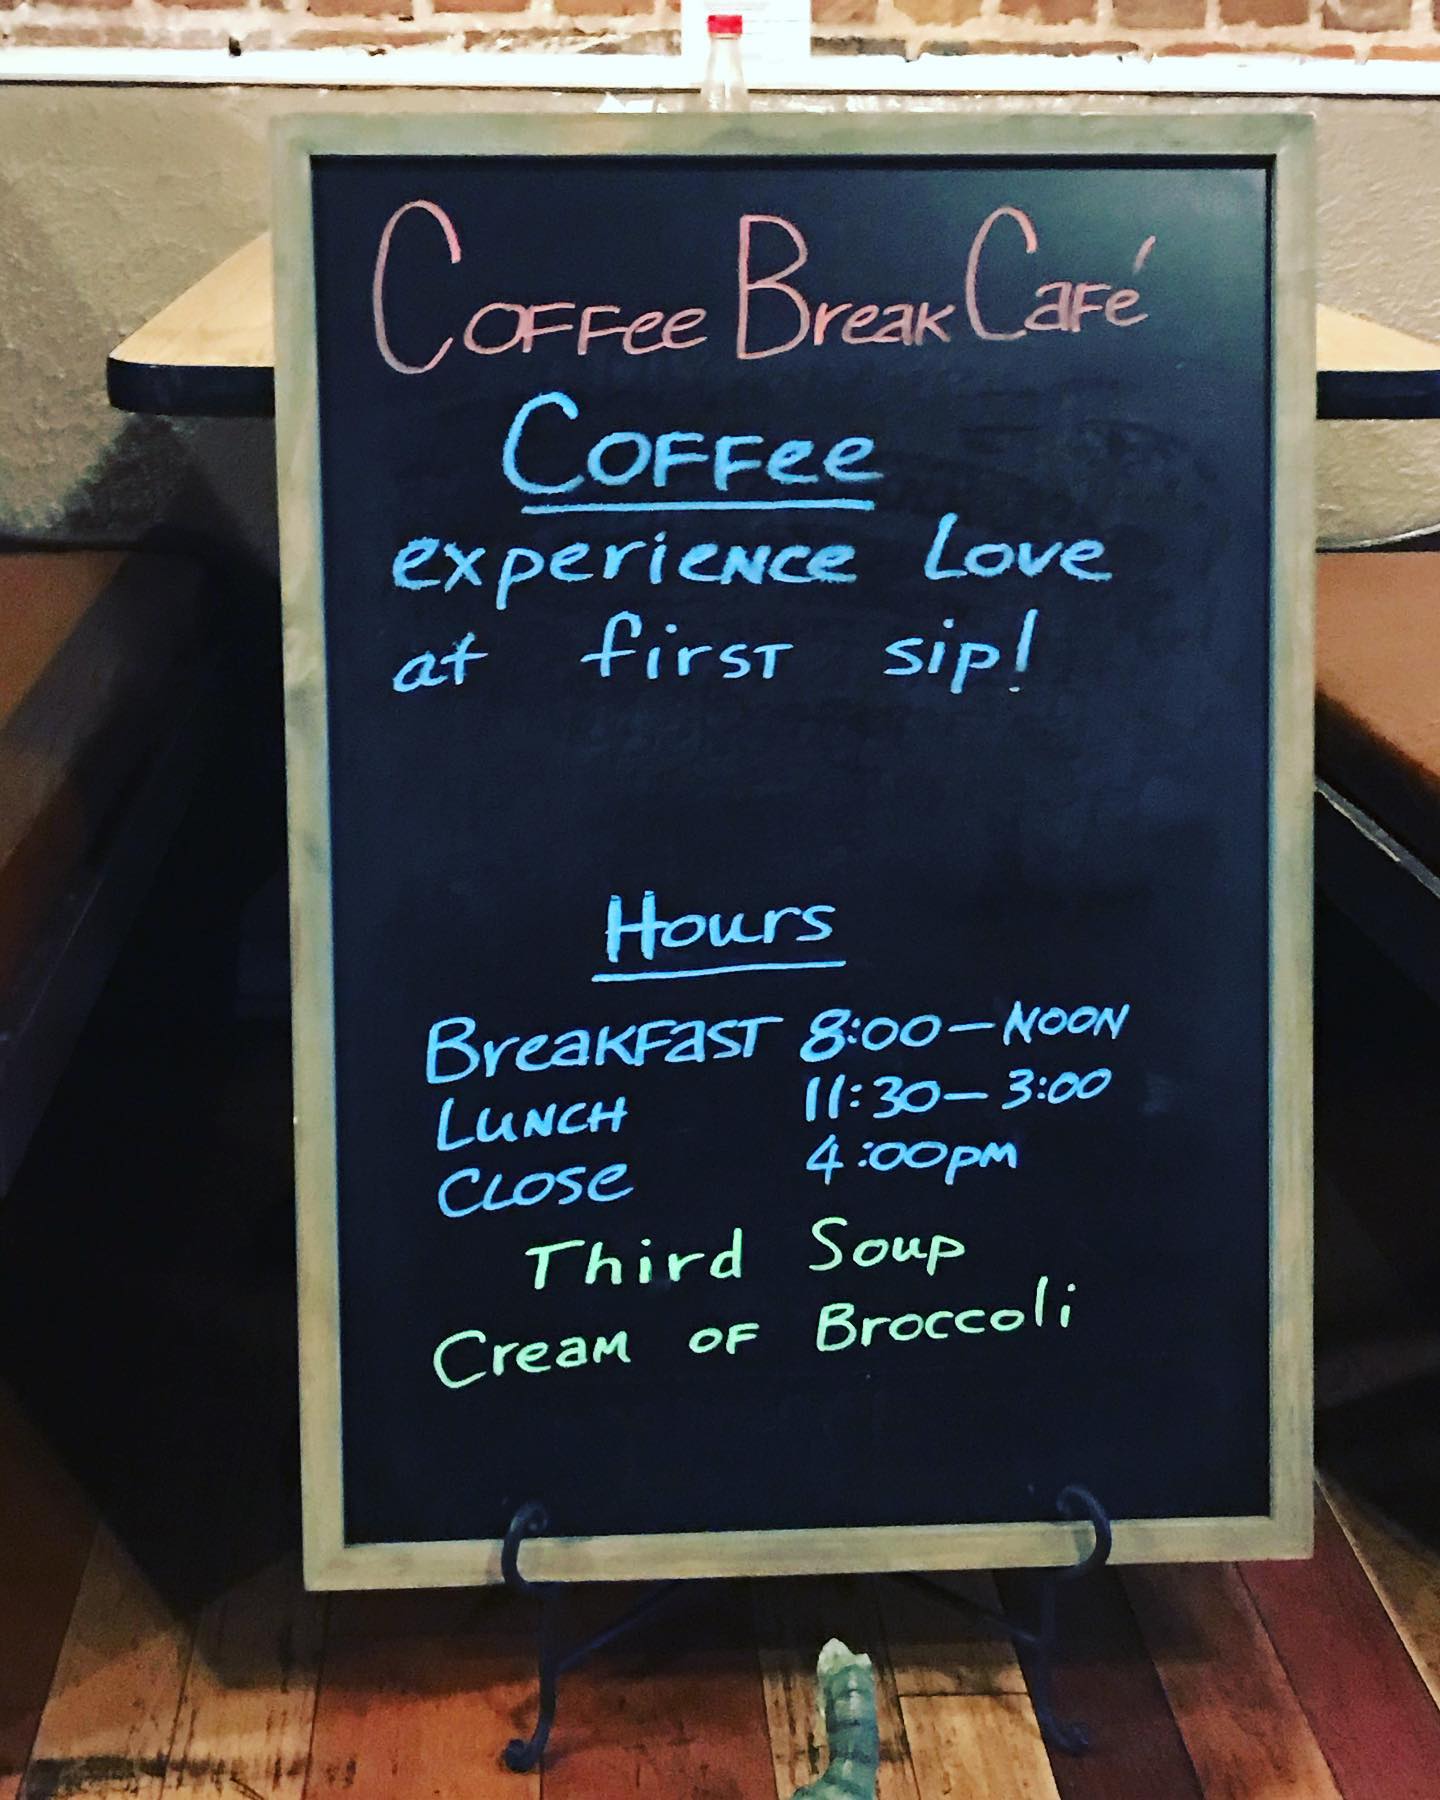 Coffee Break Café
Coffee
experience Love
at first sip!
Hours
Breakfast 8:00 - Noon
Lunch 11:30 - 3:00
Close 4:00pm
Third Soup
Cream of Broccoli